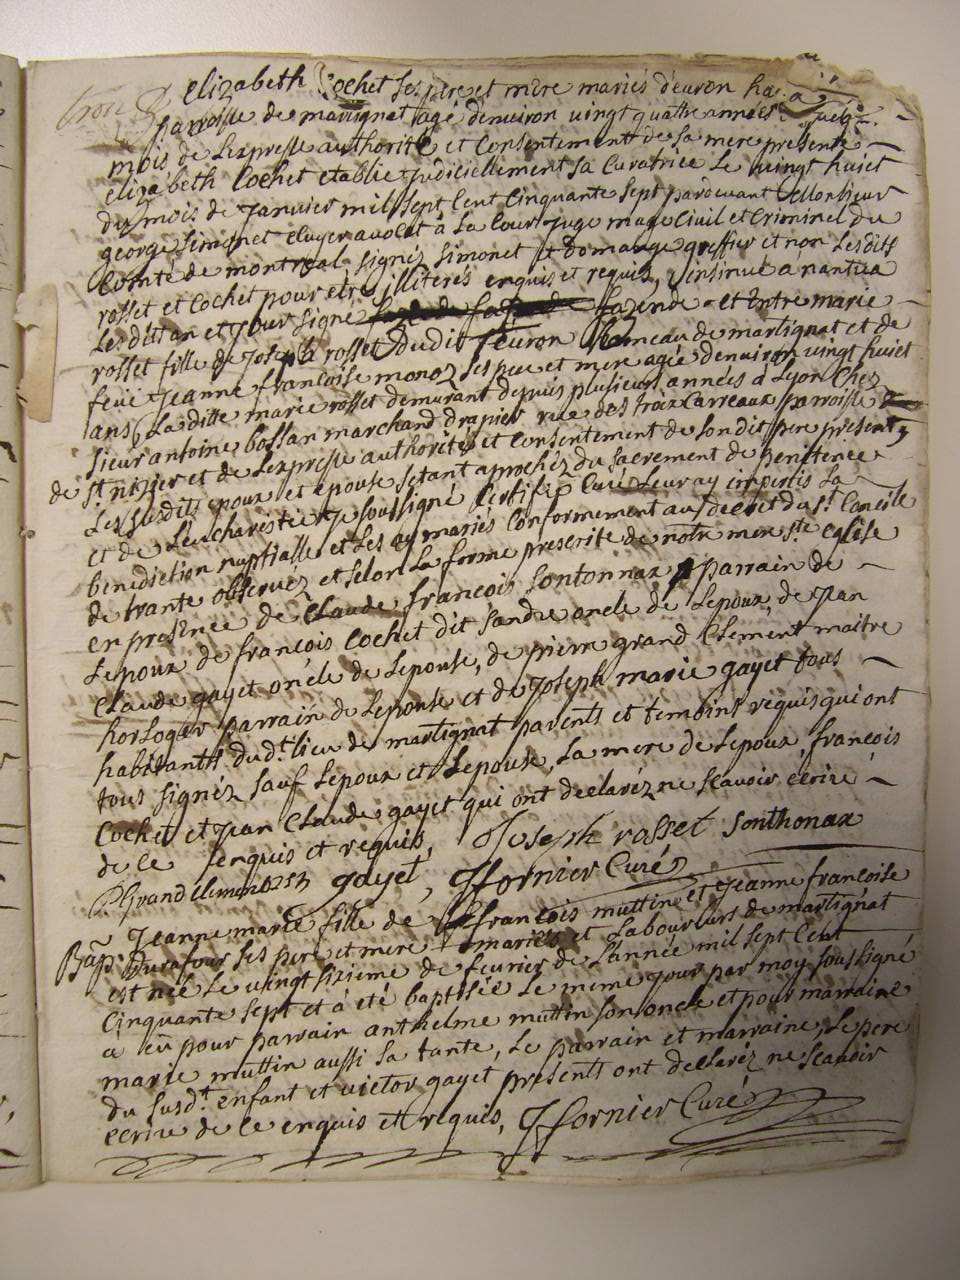 elizabeth Cochet ses pere et mere mariés d'evron ha
parroisse de martignat agé denviron vingt quattre années
mois de Lexpresse authorité et Consentement de sa mere presente
elizabeth Cochet etablie Judiciellement sa Curatrice Le vingt huict
du mois de Janvier mil sept Cent Cinquante sept pardevant Monsieur
george Simonet ecuyer avocat à La Cour Juge mage Civil et Criminel du
Comté de montreal, signés Simonet et domange greffier et non Lesdits
rosset et Cochet pour etre illiterés enquis et requis, insinué à nantua
Lesdits an et Jour signé fazende et Entre marie
rosset fille de Joseph rosset dudit evron hameau de martignat et de
feüe Jeanne francoise monoz ses pere et mere agée denviron vingt huict
ans, La ditte marie rosset demurant depuis plusieurs années à Lyon Chez
sieur antoine bossan marchand drapier rue des trois Carreaux parroisse
de st. nizier et de Lexpresse authorité et Consentement de son dit pere present,
Les susdits epoux et epouse setant approchéz du sacrement de penitence
et de Leucharestie Je soussigné Certifie Curé Leur ay imperti La
benediction nuptialle et Les ay mariés Conformement au decret du st. Concile
de trante observéz et selon La forme prescrite de notre mere ste. eglise
en presence de Claude francois sontonnax parrain de
Lepoux de francois Cochet dit sandre oncle de Lepoux, de Jean
Claude gayet oncle de Lepouse, de pierre grand Clement maitre
horloger parrain de Lepouse et de Joseph marie gayet tous
habitants dudt. lieu de martignat parents et temoins requis qui ont
tous signéz sauf Lepoux et Lepouse, La mere de Lepoux, francois
Cochet et Jean Claude gayet qui ont declaréz ne scavoir ecrire
de ce enquis et requis, Joseph rosset Sonthonax
P. Grandclement gayet, Jfornier Curé
Jeanne marie fille de francois muttin et Jeanne francoise
Bap. Ducafour ses pere et mere mariés et Laboureurs de martignat
est née Le vingt sixieme de fevrier de L'année mil sept Cent
Cinquante sept et à été baptisée Le meme jour par moy soussigné
à eü pour parrain anthelme muttin son oncle et pour marraine
marie muttin aussi sa tante, Le parrain et marraine, Le pere
du susdt. enfant et victor gayet presents ont declaréz ne scavoir
ecrire de ce enquis et requis, Jfornier Curé